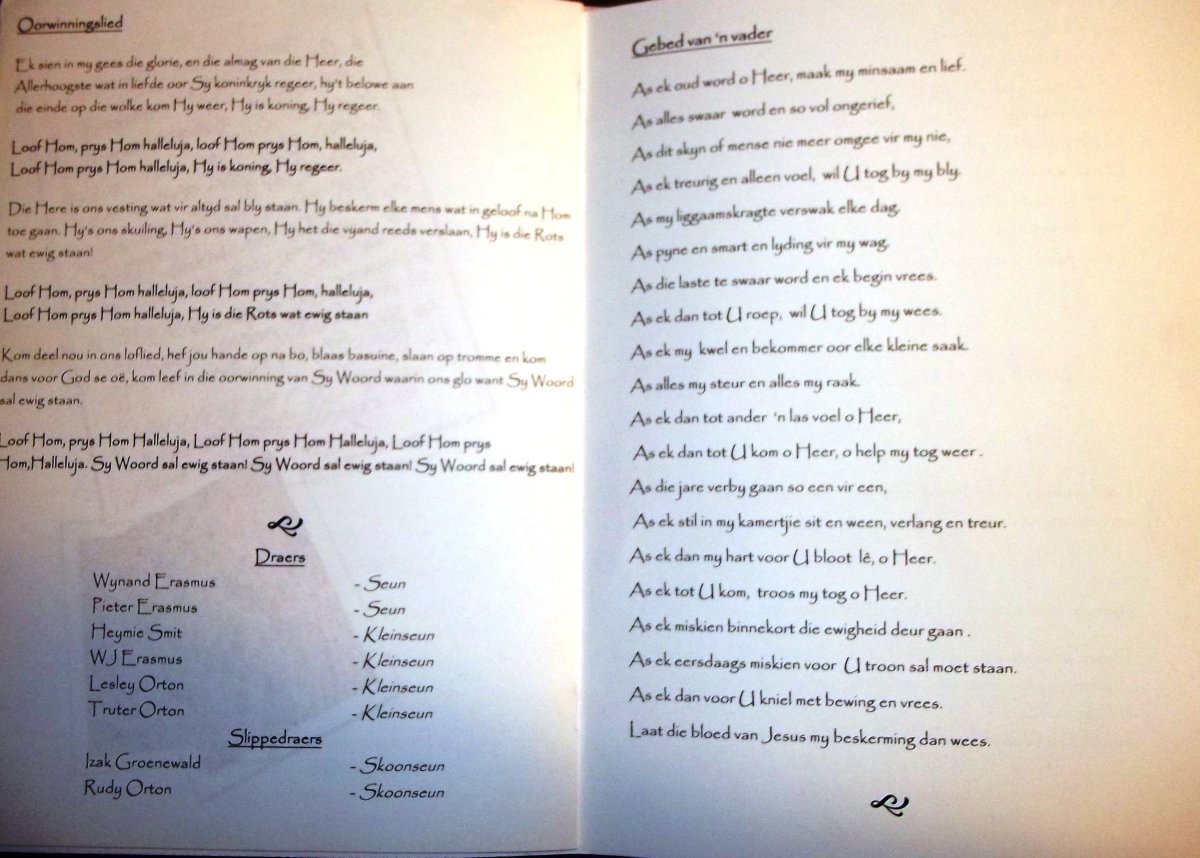 Oorwinningslied
Ek sien in my gees die glorie, en die almag van die Heer, die
Allerhoogste wat in liefde oor Sy koninkryk regeer, hy't belowe aan
die einde op die wolke kom Hy weer, Hy is koning, Hy regeer.
Loof Hom, prys Hom halleluja, loof Hom prys Hom, halleluja,
Loof Hom prys Hom halleluja, Hy is koning, Hy regeer.
Die Here is ons vesting wat vir altyd sal bly staan. Hy beskerm elke mens wat in geloof na Hom
toe gaan. Hy's ons skuiling, Hy's ons wapen, Hy het die vyand reeds verslaan, Hy is die Rots
wat ewig staan!
Loof Hom, prys Hom halleluja, loof Hom prys Hom, halleluja,
Loof Hom prys Hom halleluja, Hy is die Rots wat ewig staan
Kom deel nou in ons loflied, hef jou hande op na bo, blaas basuine, slaan op tromme en kom
dans voor God se oë, kom leef in die oorwinning van Sy Woord waarin ons glo want Sy Woord
sal ewig staan.
Loof Hom, prys Hom Halleluja, Loof Hom prys Hom Halleluja, Loof Hom prys
Hom,Halleluja. Sy Woord sal ewig staan! Sy Woord sal ewig staan! Sy Woord sal ewig staan!
Draers
Wynand Erasmus - Seun
Pieter Erasmus - Seun
Heymie Smit - Kleinseun
WJ Erasmus - Kleinseun
Lesley Orton - Kleinseun
Truter Orton - Kleinseun
Slippedraers
Izak Groenewald - Skoonseun
Rudy Orton - Skoonseun
Gebed van 'n vader
As ek oud word o Heer, maak my minsaam en lief.
As alles swaar word en so vol ongerief,
As dit skyn of mense nie meer omgee vir my nie,
As ek treurig en alleen voel, wil U tog by my bly.
As my liggaamskragte verswak elke dag.
As pyne en smart en lyding vir my wag.
As die laste te swaar word en ek begin vrees.
As ek dan tot U roep, wil U tog by my wees.
As ek my kwel en bekommer oor elke kleine saak.
As alles my steur en alles my raak.
As ek dan tot ander 'n las voel o Heer,
As ek dan tot U kom o Heer, o help my tog weer .
As die jare verby gaan so een vir een,
As ek stil in my kamertjie sit en ween, verlang en treur.
As ek dan my hart voor U bloot lê, o Heer.
As ek tot U kom, troos my tog o Heer.
As ek miskien binnekort die ewigheid deur gaan .
As ek eersdaags miskien voor U troon sal moet staan.
As ek dan voor U kniel met bewing en vrees.
Laat die bloed van Jesus my beskerming dan wees.